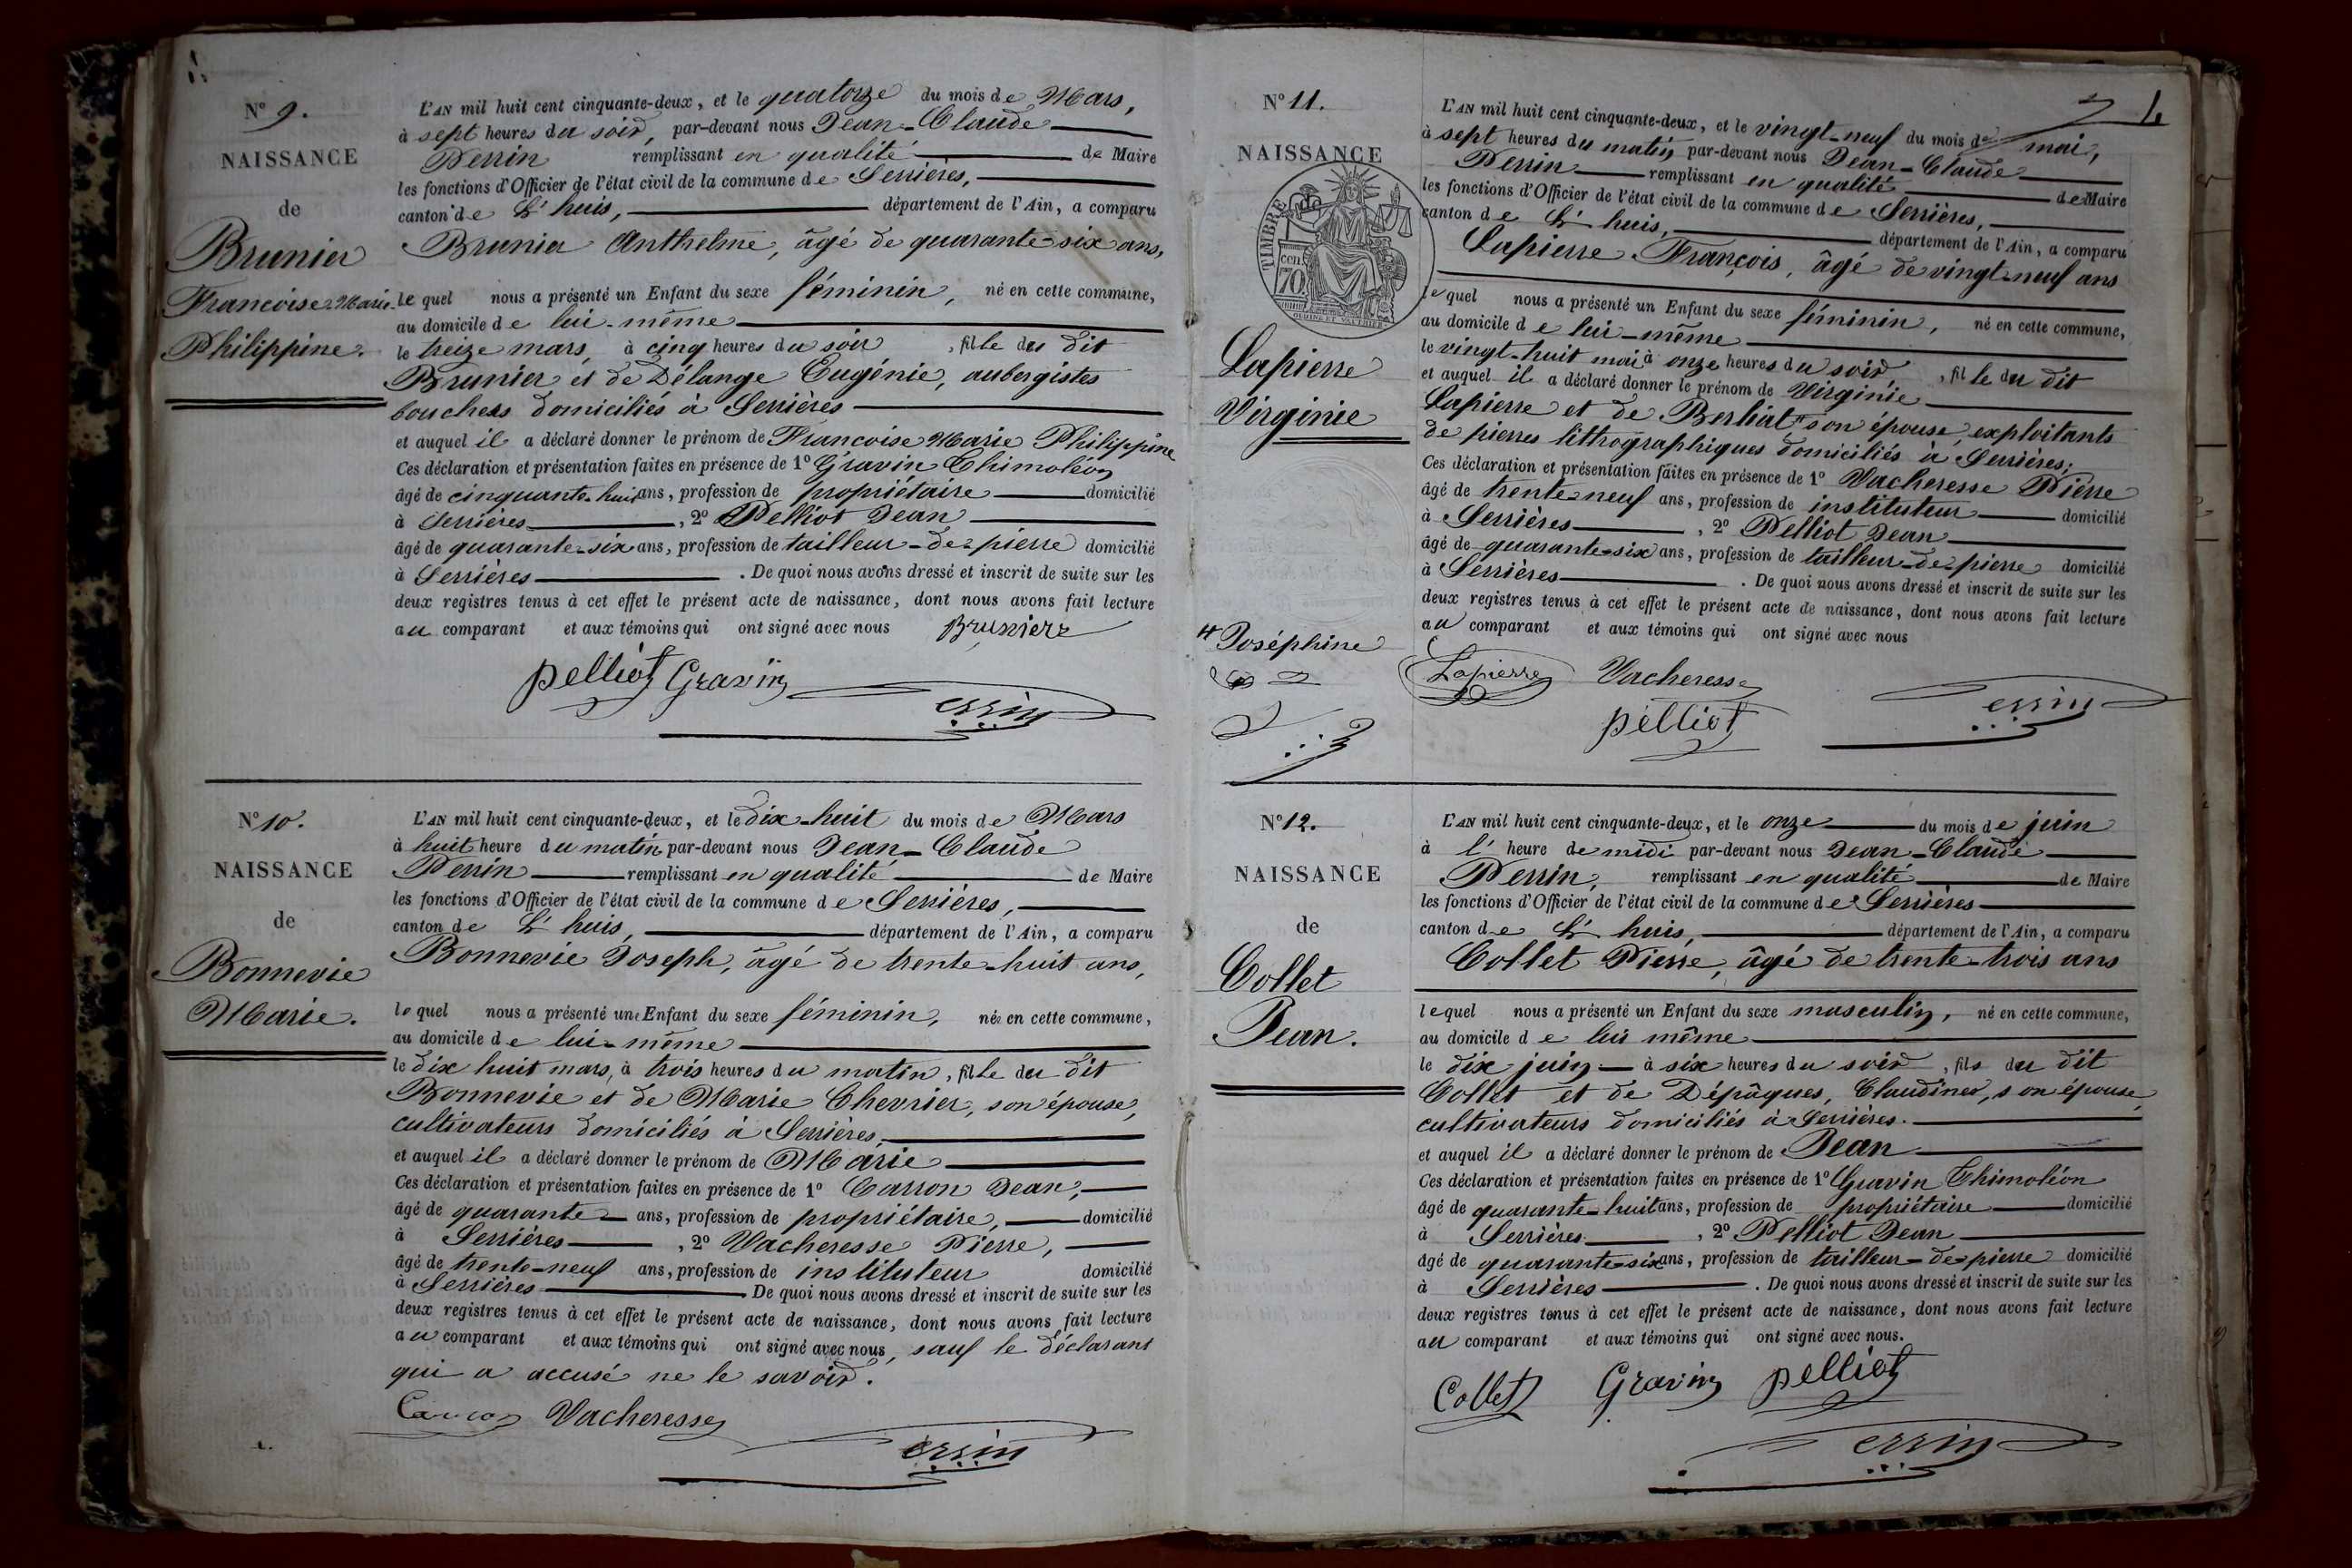 N° 9.
NAISSANCE
de
Brunier
Francoise-Marie-
Philippine.
L'AN mil huit cent cinquante-deux, et le quatorze du mois de Mars,
à sept heures du soir, par-devant nous Jean-Claude
Perrin remplissant en qualité de Maire
les fonctions d'Officier de l'état civil de la commune de Serrières,
canton de L'huis, département de l'Ain, a comparu
Brunier Anthelme, âgé de quarante-six ans,
lequel nous a présenté un Enfant du sexe féminin, né en cette commune,
au domicile de lui-même
le treize mars, à cinq heures du soir, fille du dit
Brunier et de Délange Eugénie, aubergistes
bouchers domiciliés à Serrières
et auquel il a déclaré donner le prénom de Francoise Marie Philippine
Ces déclaration et présentation faites en présence de 1° Gravin Thimoléon
âgé de cinquante-huit ans, profession de propriétaire domicilié
à Serrières, 2° Pelliot Jean
âgé de quarante-six ans, profession de tailleur-de-pierre domicilié
à Serrières. De quoi nous avons dressé et inscrit de suite sur les
deux registres tenus à cet effet le présent acte de naissance, dont nous avons fait lecture
au comparant et aux témoins qui ont signé avec nous Brunier
pelliot Gravin
Perrin
N° 10.
NAISSANCE
de
Bonnevie
Marie.
L'AN mil huit cent cinquante-deux, et le dix-huit du mois de Mars
à huit heure du matin par-devant nous Jean-Claude
Perrin remplissant en qualité de Maire
les fonctions d'Officier de l'état civil de la commune de Serrières,
canton de L'huis, département de l'Ain, a comparu
Bonnevie Joseph, âgé de trente-huit ans,
lequel nous a présenté une Enfant du sexe féminin, née en cette commune,
au domicile de lui-même
le dix huit mars, à trois heures du matin, fille du dit
Bonnevie et de Marie Chevrier, son épouse,
cultivateurs domiciliés à Serrières,
et auquel il a déclaré donner le prénom de Marie
Ces déclaration et présentation faites en présence de 1° Carron Jean,
âgé de quarante ans, profession de propriétaire, domicilié
à Serrières, 2° Vacheresse Pierre,
âgé de trente-neuf ans, profession de instituteur domicilié
à Serrières De quoi nous avons dressé et inscrit de suite sur les
deux registres tenus à cet effet le présent acte de naissance, dont nous avons fait lecture
au comparant et aux témoins qui ont signé avec nous, sauf le déclarant
qui a accusé ne le savoir.
Carron Vacheresse
Perrin
4
N° 11.
NAISSANCE
TIMBRE
cen.
70
Lapierre
Virginie
# Joséphine
L'AN mil huit cent cinquante-deux, et le vingt-neuf du mois de mai,
à sept heures du matin par-devant nous Jean-Claude
Perrin remplissant en qualité de Maire
les fonctions d'Officier de l'état civil de la commune de Serrières,
canton de L'huis, département de l'Ain, a comparu
Lapierre François, âgé de vingt-neuf ans
lequel nous a présenté un Enfant du sexe féminin, né en cette commune,
au domicile de lui-même
le vingt-huit mai à onze heures du soir, fille du dit
et auquel il a déclaré donner le prénom de Virginie
Lapierre et de Berliat # son épouse, exploitants
de pierres lithographiques domiciliés à Serrières;
Ces déclaration et présentation faites en présence de 1° Vacheresse Pierre
âgé de trente-neuf ans, profession de instituteur domicilié
à Serrières, 2° Pelliot Jean
âgé de quarante-six ans, profession de tailleur-de-pierre domicilié
à Serrières. De quoi nous avons dressé et inscrit de suite sur les
deux registres tenus à cet effet le présent acte de naissance, dont nous avons fait lecture
au comparant et aux témoins qui ont signé avec nous
Lapierre Vacheresse
pelliot
Perrin
N° 12.
NAISSANCE
de
Collet
Jean.
L'AN mil huit cent cinquante-deux, et le onze du mois de juin
à l' heure de midi par-devant nous Jean-Claude
Perrin, remplissant en qualité de Maire
les fonctions d'Officier de l'état civil de la commune de Serrières
canton de L'huis, département de l'Ain, a comparu
Collet Pierre, âgé de trente-trois ans
lequel nous a présenté un Enfant du sexe masculin, né en cette commune,
au domicile de lui même
le dix juin à six heures du soir, fils du dit
Collet et de Dépâques, Claudine, son épouse,
cultivateurs domiciliés à Serrières.
et auquel il a déclaré donner le prénom de Jean
Ces déclaration et présentation faites en présence de 1° Gravin Thimoléon
âgé de quarante-huit ans, profession de propriétaire domicilié
à Serrières, 2° Pelliot Jean
âgé de quarante-six ans, profession de tailleur-de-pierre domicilié
à Serrières. De quoi nous avons dressé et inscrit de suite sur les
deux registres tenus à cet effet le présent acte de naissance, dont nous avons fait lecture
au comparant et aux témoins qui ont signé avec nous.
Collet Gravin pelliot
Perrin